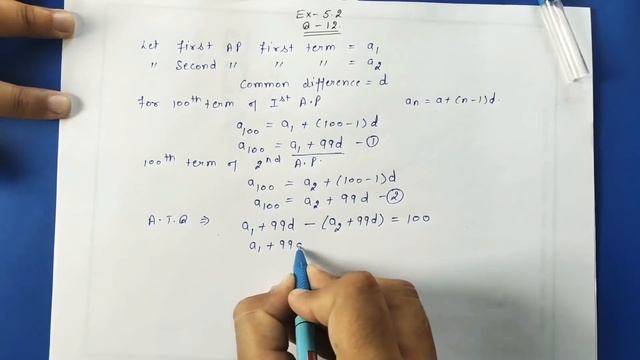 Ex-5.2
Q-12
Let first AP first term = a₁
" Second " " " = a₂
Common difference = d
for 100th term of Ist A.P
an = a+(n-1)d.
a₁₀₀ = a₁ + (100-1)d
a₁₀₀ = a₁ + 99d - ①
100th term of 2nd A.P.
a₁₀₀ = a₂ + (100-1)d
a₁₀₀ = a₂ + 99d - ②
A.T.Q ⇒ a₁ + 99d - (a₂ + 99d) = 100
a₁ + 99